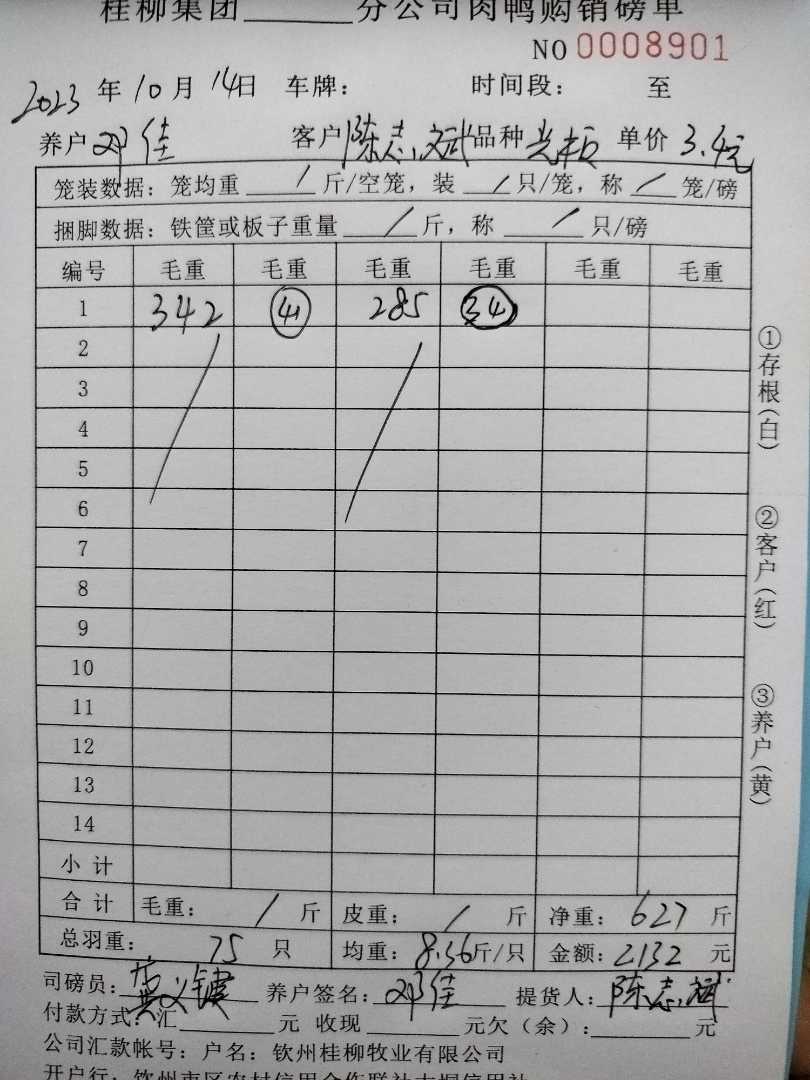 桂柳集团______分公司肉鸭购销磅单
NO 0008901
2023年10月14日 车牌: 时间段: 至
养户 邓佳 客户 陈志斌 品种 单价 3.4元
笼装数据: 笼均重 / 斤/空笼, 装 / 只/笼, 称 / 笼/磅
捆脚数据: 铁筐或板子重量 / 斤, 称 / 只/磅
编号 毛重 毛重 毛重 毛重 毛重 毛重
1 342 41 285 34
2
3
4
5
6
7
8
9
10
11
12
13
14
小计
合计 毛重: / 斤 皮重: / 斤 净重: 627 斤
总羽重: 75 只 均重: 8.36斤/只 金额: 2132 元
司磅员: 养户签名: 邓佳 提货人: 陈志斌
付款方式: 汇______元 收现______元欠(余):______元
公司汇款帐号: 户名: 钦州桂柳牧业有限公司
开户行: 钦州市区农村信用合作联社大垌信用社
①存根(白)
②客户(红)
③养户(黄)